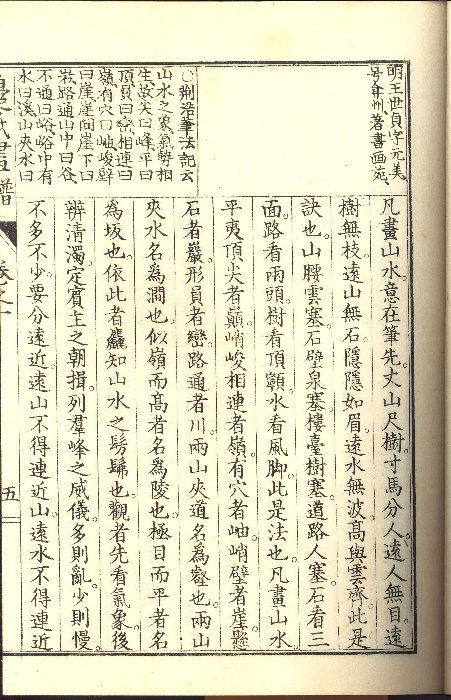 明王世貞字元美
号弇州著書画苑
○荆浩筆法記云
山水之象氣勢相
生故尖曰峰平曰
頂員曰巒相連曰
嶺有穴曰岫峻壁
曰崖崖間崖下曰
巖路通山中曰谷
不通曰峪峪中有
水曰溪山夾水曰
凡畫山水意在筆先。丈山尺樹。寸馬分人。遠人無目。遠
樹無枝。遠山無石。隱隱如眉。遠水無波。高與雲齊。此是
訣也。山腰雲塞。石壁泉塞。樓臺樹塞。道路人塞。石看三
面。路看兩頭。樹看頂顛。水看風脚。此是法也。凡畫山水。
平夷頂尖者巔。峭峻相連者嶺。有穴者岫。峭壁者崖。懸
石者巖。形員者巒。路通者川。兩山夾道名為壑也。兩山
夾水名為澗也。似嶺而高者名為陵也。極目而平者名
為坂也。依此者麤知山水之髣髴也。觀者先看氣象。後
辨清濁。定賓主之朝揖。列羣峰之威儀。多則亂。少則慢。
不多不少。要分遠近。遠山不得連近山。遠水不得連近
譜
卷之十
五